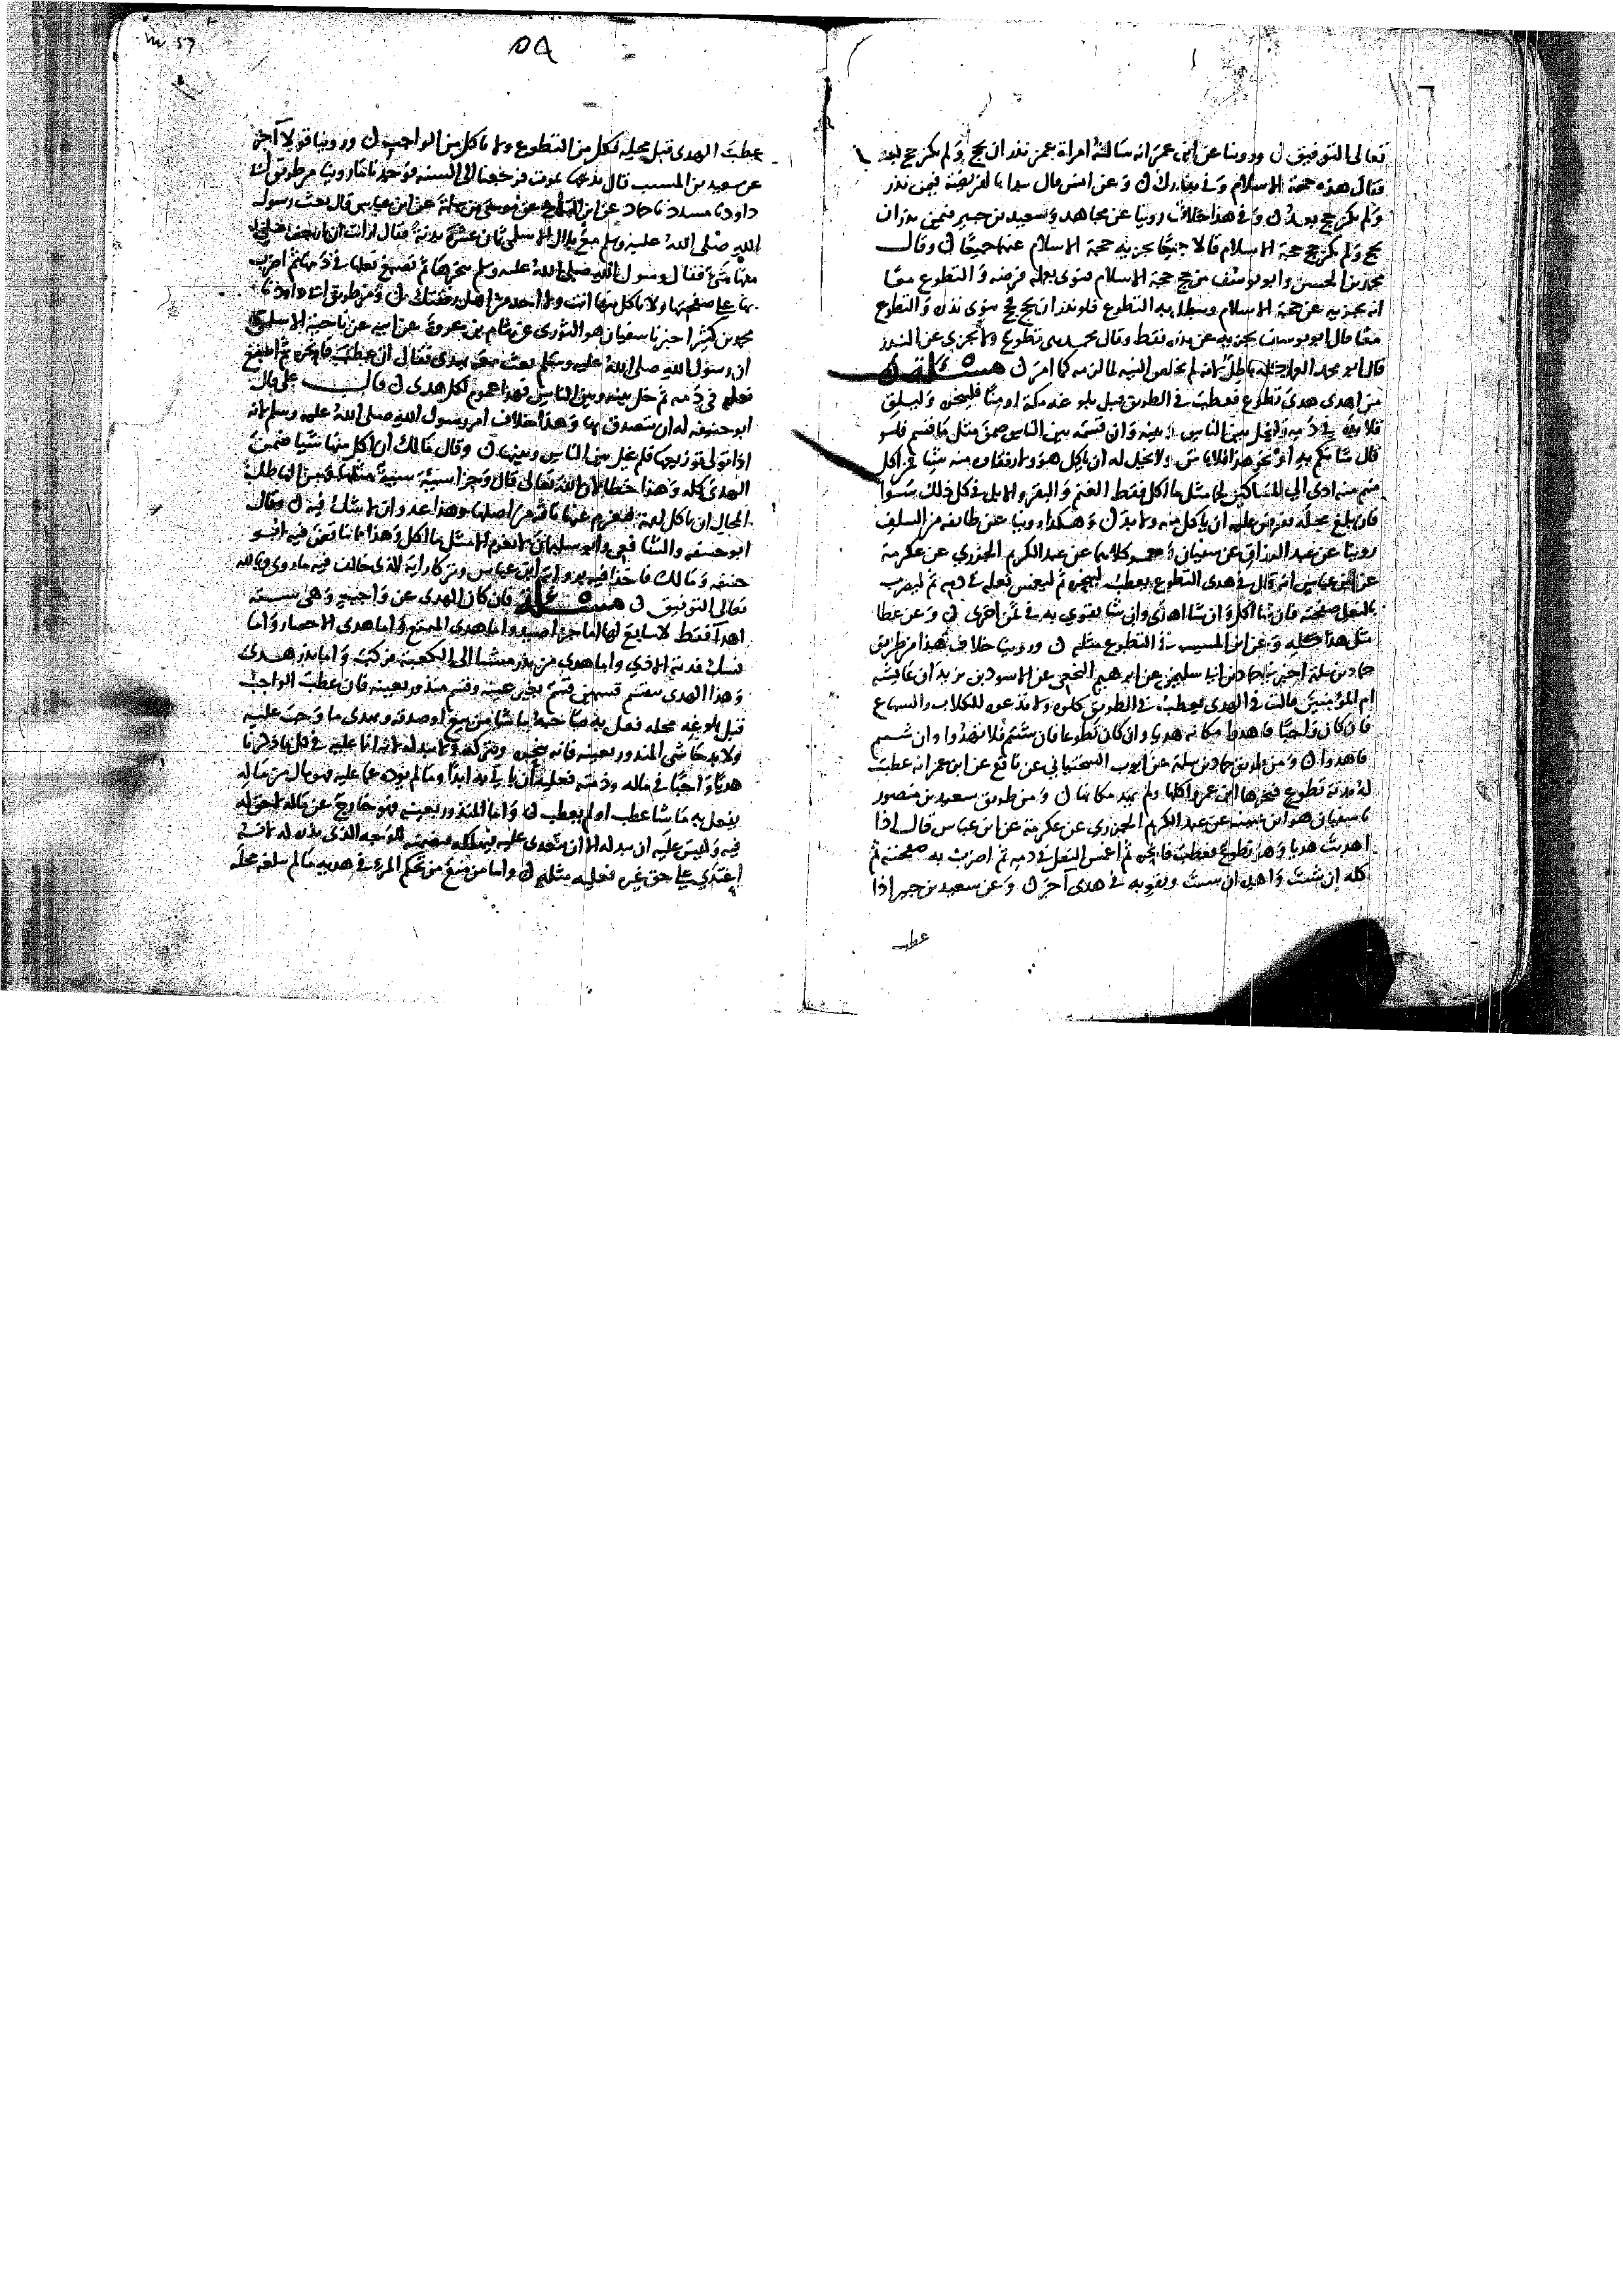 تعالى التوفيق ورويناعن ابن عمر انه سالته امراة عمن نذر ان يحج ولم يكن حج بعد
فقال هذه حجة الاسلام وفي بنذرك وعن انس قال يبدا بالفريضة فيمن نذر
ولم يكن حج بعد وفي هذا خلاف روينا عن مجاهد وسعيد بن جبير فيمن نذر ان
يحج ولم يكن حج حجة الاسلام قالا جميعا يجزيه حجة الاسلام عنهما جميعا وقال
محمد بن الحسن وابو يوسف من حج حجة الاسلام فنوى بعمله فرضه والتطوع معا
انه يجزيه عن حجة الاسلام ويبطل نية التطوع فلو نذر ان يحج فحج ينوى نذره والتطوع
معا قال ابو يوسف يجزيه عن نذره فقط وقال محمد هي تطوع ولا تجزي عن النذر
قال ابو محمد العمل كله باطل لانه لم يخلص النية لما لزمه كما امر مسئلة
من اهدى هدي تطوع فعطب في الطريق قبل بلوغه مكة او منى فلينحره وليلق
قلائده في دمه وليخل بين الناس وبينه وان قسمه بين الناس ضمن مثل ما قسم فلو
قال شانكم به او نحو هذا فلا باس ولا يحل له ان ياكل هو ولا رفقاوه منه شيئا فمن اكل
منهم منه ادى الى المساكين لحما مثل ما اكل فقط الغنم والبقر والابل في كل ذلك سوا
فان بلغ محله ففرض عليه ان ياكل منه ولا بد وهكذا روينا عن طائفة من السلف
روينا عن عبد الرزاق عن سفيان ومعمر كلاهما عن عبد الكريم الجزري عن عكرمة
عن ابن عباس انه قال في هدى التطوع يعطب لينحره ثم ليغمس نعله في دمه ثم ليضرب
بالنعل صفحته فان شا اكل وان شا اهدى وان شا تقوى به في ثمن اخرى وعن عطا
مثل هذا كله وعن ابن المسيب في التطوع مثله وروينا خلاف هذا من طريق
حماد بن سلة اخبرنا حماد بن ابي سليمن عن ابرهيم النخعي عن الاسود بن يزيد ان عائشة
ام المومنين قالت في الهدى يعطب في الطريق كلوه ولا تدعوه للكلاب والسباع
فان كان واجبا فاهدوا مكانه هديا وان كان تطوعا فان شئتم فلا تهدوا وان شئتم
فاهدوا ومن طريق حماد بن سلة عن ايوب السختياني عن نافع عن ابن عمر انه عطبت
له بدنة تطوع فنحرها ابن عمر واكلها ولم يهد مكانها ومن طريق سعيد بن منصور
نا سفيان هو ابن عيينة عن عبد الكريم الجزري عن عكرمة عن ابن عباس قال اذا
اهديت هديا وهو تطوع فعطب فانحره ثم اغمس النعل في دمه ثم اضرب به صفحته ثم
كله ان شئت واهده ان شئت وتقو به في هدى آخر وعن سعيد بن جبير اذا
عطب
٥٩
عطب الهدى قبل محله فكل من التطوع ولا تاكل من الواجب وروينا قولا آخر
عن سعيد بن المسيب قال يدعها تموت فرجعنا الى السنه فوجدنا ما روينا من طريق ابي
داود نا مسدد نا حماد عن ابي التياح عن موسى بن سلة عن ابن عباس قال بعث رسول
الله صلى الله عليه وسلم مع فلان الاسلمى ثمان عشرة بدنة فقال ارايت ان ازحف علي
منها شي فقال رسول الله صلى الله عليه وسلم تنحرها ثم تصبغ نعلها في دمها ثم اضرب
بها على صفحتها ولا تاكل منها انت ولا احد من اهل رفقتك ومن طريق ابي داود نا
محمد بن كثير اخبرنا سفيان هو الثوري عن هشام بن عروة عن ابيه عن ناجية الاسلمي
ان رسول الله صلى الله عليه وسلم بعث معه بهدى فقال ان عطب فانحره ثم اصبغ
نعله في دمه ثم خل بينه وبين الناس فهذا عموم لكل هدى قال علي قال
ابو حنيفه له ان يتصدق بها وهذا خلاف امر رسول الله صلى الله عليه وسلم لانه
اذا تولى توزيعها فلم يخل بين الناس وبينها وقال مالك ان اكل منها شيئا ضمن
الهدى كله وهذا خطا لان الله تعالى قال وجزا سيئة سيئة مثلها فمن الباطل
المحال ان ياكل لقمة فيغرم عنها ناقة من اصلها وهذا عدوان لا شك فيه وقال
ابو حنيفه والشافعي وابو سليمان لا يغرم الا مثل ما اكل وهذا مما تناقض فيه ابو
حنيفه ومالك فاخذا فيه برواية ابن عباس وتركا رايه الذي خالف فيه ما روى وبالله
تعالى التوفيق مسئلة فان كان الهدى عن واجب وهي ستة
اهدا فقط لا سابع لها اما جزا صيد واما هدى المتمتع واما هدى الاحصار واما
نسك فدية الاذي واما هدي من نذر مشيا الى الكعبة فركب واما نذر هدى
وهذا الهدى ينقسم قسمين قسم بغير عينه وقسم منذور بعينه فان عطب الواجب
قبل بلوغه محله فعل به صاحبه ما شا من بيع او صدقه ويهدى ما وجب عليه
ولا بد حاشى المنذور بعينه فانه ينحره ويتركه ولا يبدله لانه انما عليه في كل ما ذكرنا
هديا واجبا في ماله وذمته فعليه ان ياتي به ابدا وما لم يوده عما عليه فهو مال من ماله
يفعل به ما شا عطب او لم يعطب واما المنذور بعينه فهو خارج عن ماله لا حق له
فيه وليس عليه ان يبدله الا ان يتعدى عليه فيهلكه فيضمنه للوجه الذي نذره له لانه
اعتدى على حق غيره فعليه مثله واما من منع من تحكم المرء في هديه ما لم يبلغ محله